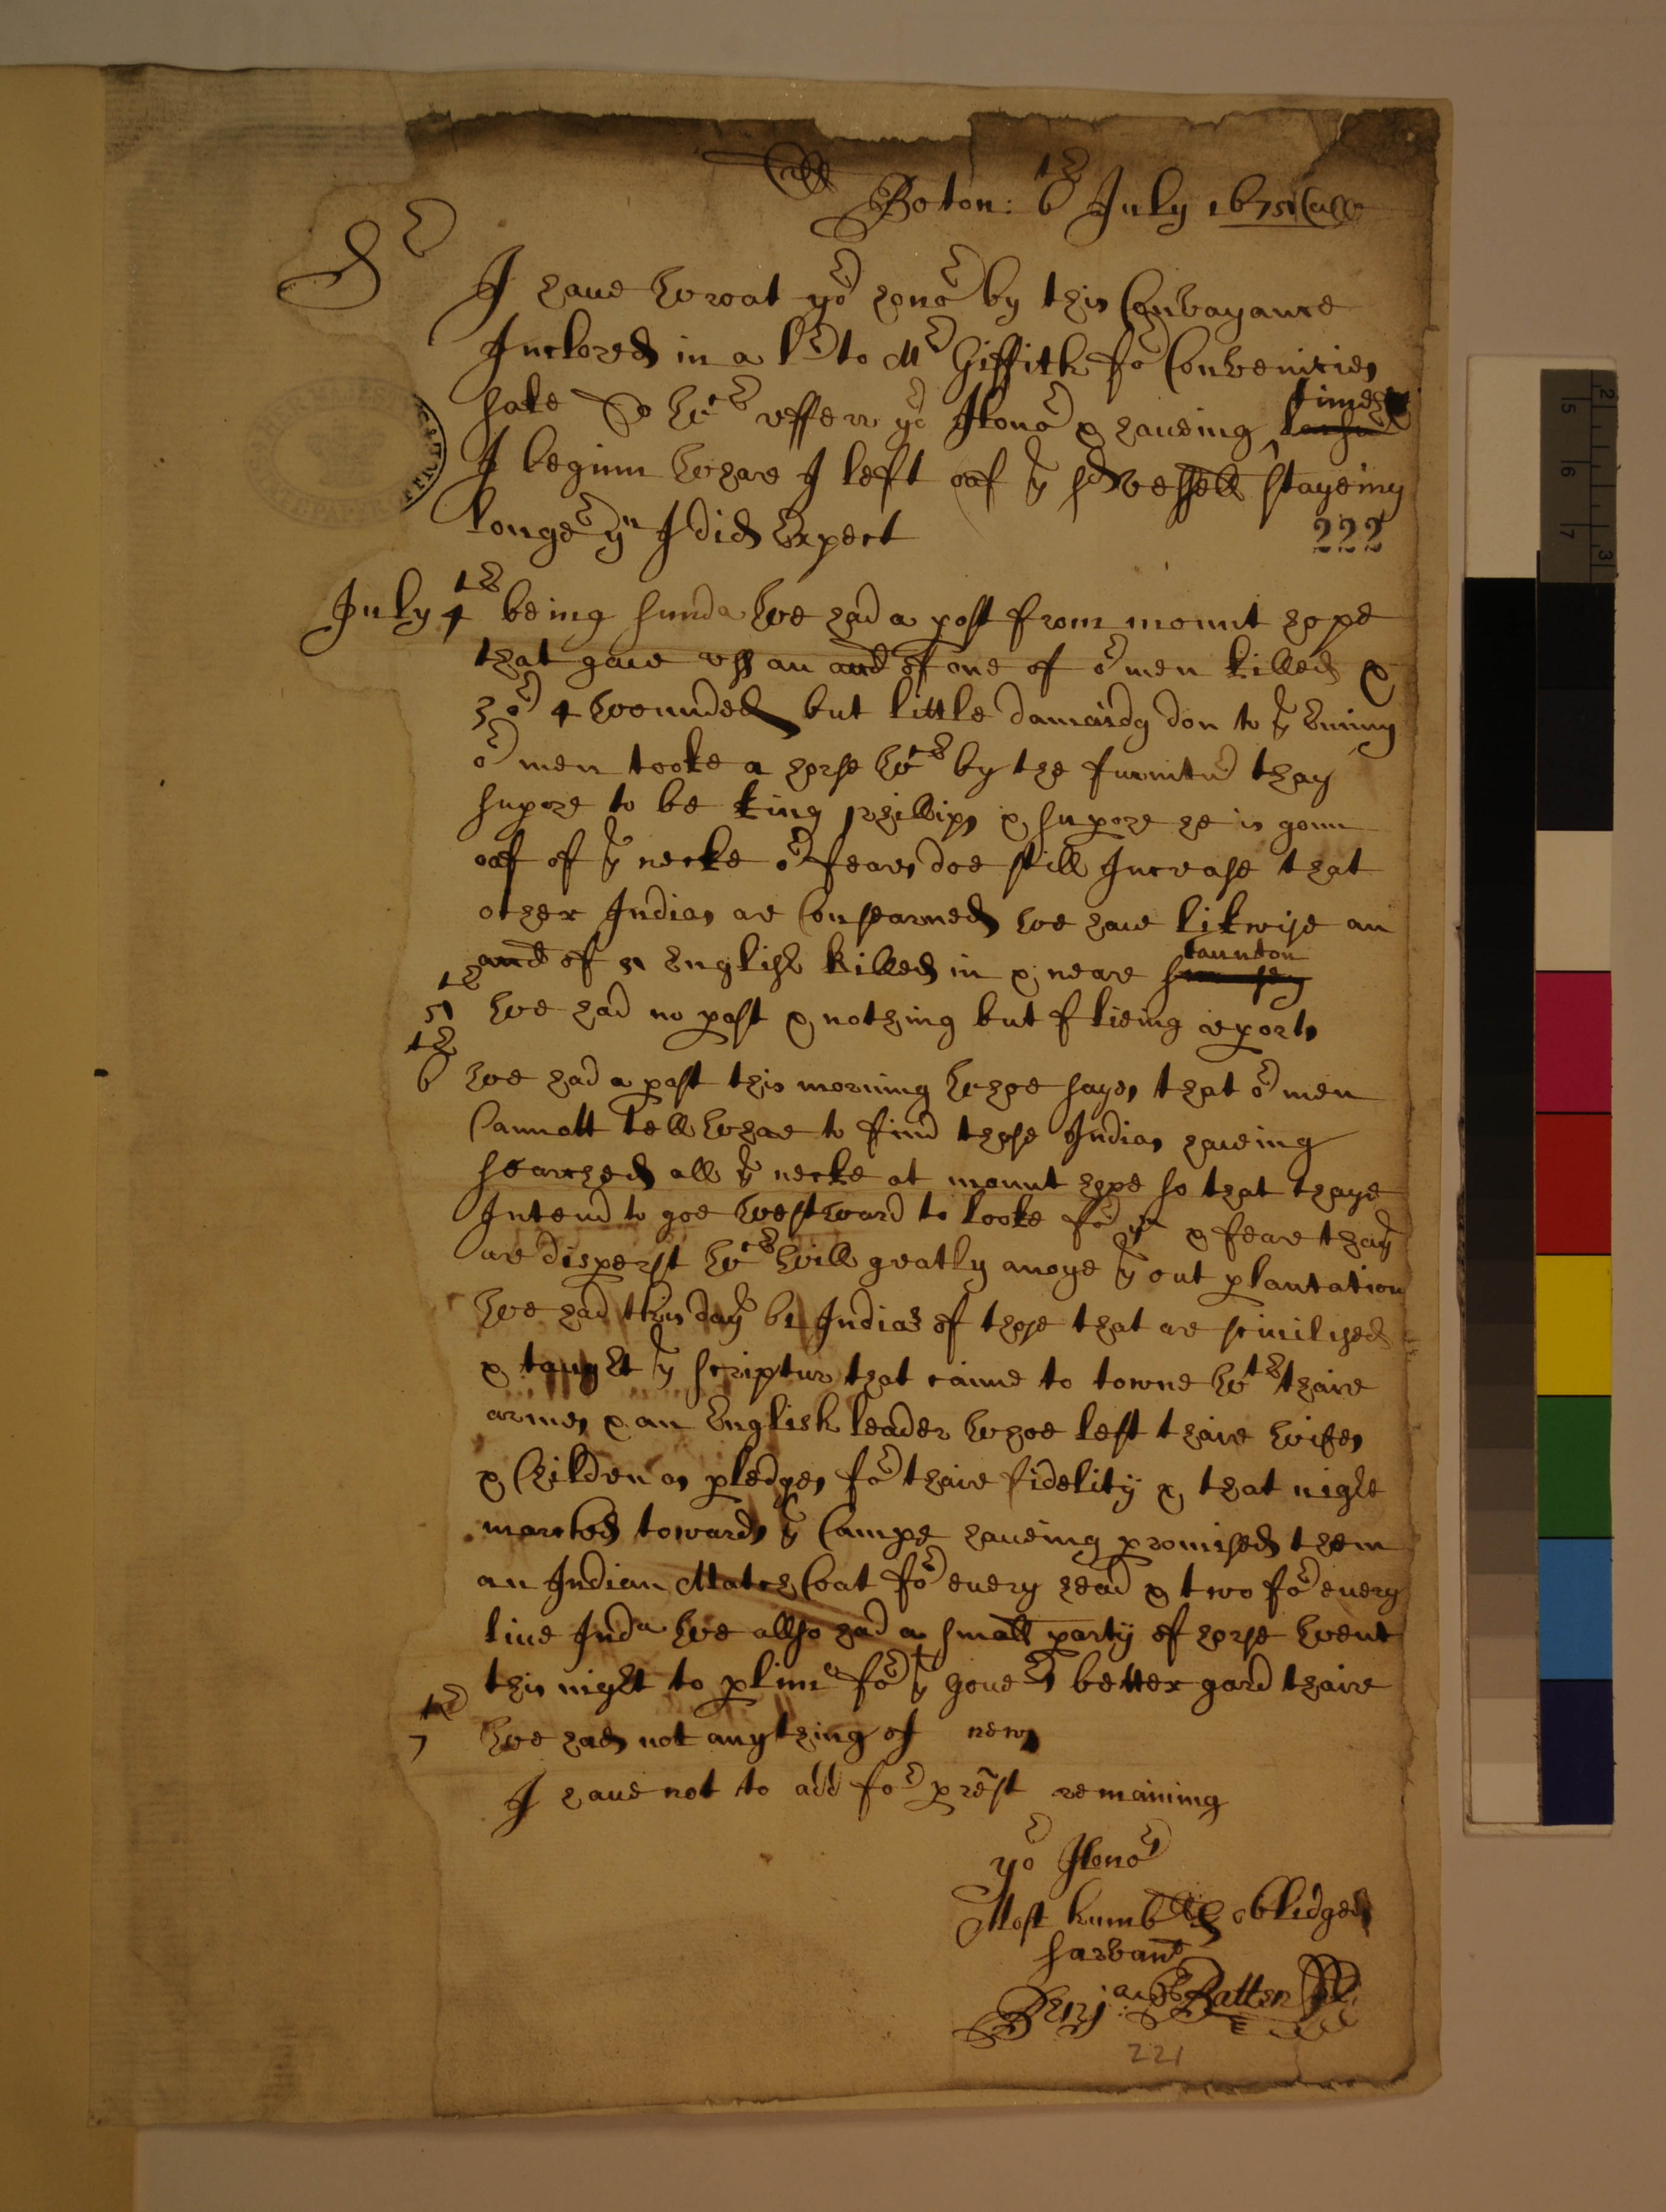 Boston: 6th July 1675
Sr
I haue wroat yor honor by this Convayance
Inclosed in a lr to Mr Giffith for Conveniries
sake to wch reffers yor Honor & haueing time
I beginn whare I left oaf ye sd vessell stayeing
longer yn I did Expect
222
July 4th being sunda we had a post from mount hope
that gaue vss an acct of one of or men killed &
3 or 4 wounded but little damaidg don to ye Enimy
or men tooke a horse wch by the furnitur thay
supose to be king phillips & supose he is gonn
oaf of ye necke or feares doe still Increase that
other Indias are Consearned we haue likwise an
acct of 5 English killed in & neare taunton
5th we had no post & nothing but flieing reports
6th we had a post this morning whoe sayes that or men
Cannott tell whare to find those Indias haueing
searched all ye necke at mount hope so that thaye
Intend to goe westward to looke for ym & feare thay
are disperst wch will greatly anoye ye out plantation
we had this day 61 Indias of those that are sivilised
& taught ye scriptur that caime to towne wth thaire
armes & an English leader whoe left thaire wifes
& Children as pledges for thaire fidelity & that night
marched towards ye Campe haueing promised them
an Indian Match Coat for euery head & two for euery
liue Inda we allso had a small party of horse went
this night to plimº for ye gouers better gard thaire
7th we had not anything of news
I haue not to add for prest remaining
yor Honors
Most humble obledged
sarvant
Benja: Batten
221